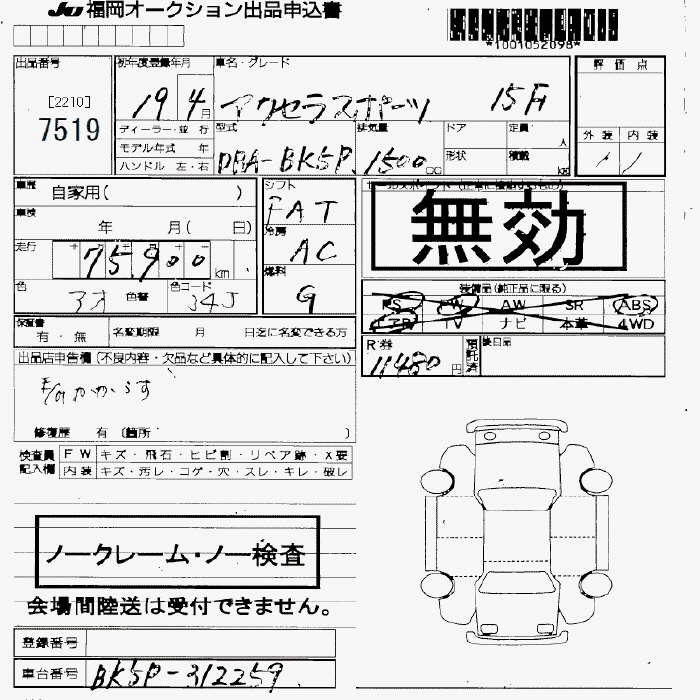 JU 福岡オークション出品申込書
*1001052098*
出品番号 初年度登録年月 車名・グレード 評価点
[2210]
7519
19 4月 アクセラスポーツ 15F
ディーラー・並行 型式 排気量 ドア 定員 人 外装 内装
モデル年式 年 DBA-BK5P 1500cc 形状 積載 kg
ハンドル 左・右
車歴 自家用( ) シフト FAT
車検 年 月( 日) 冷房 AC
走行 75,900 km 燃料 G
無効
色 アオ 色替 色コード 34J
装備品(純正品に限る)
PS PW AW SR ABS
TV ナビ 本革 4WD
保証書 有・無 名変期限 月 日迄に名変できる方
R券 11480円 預託済 後日品
出品店申告欄(不良内容・欠品など具体的に記入して下さい)
かからず
修復歴 有 (箇所 )
検査員記入欄 FW キズ・飛石・ヒビ割・リペア跡・X要
内装 キズ・汚レ・コゲ・穴・スレ・キレ・破レ
ノークレーム・ノー検査
会場間陸送は受付できません。
登録番号
車台番号 BK5P-312259